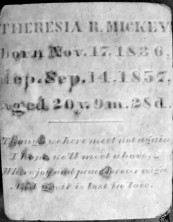 THERESIA R. MICKEY
born Nov. 17. 1836.
dep. Sep. 14. 1857.
aged. 20 y. 9 m. 28 d.
Though we here meet not again
I hope we'll meet above,
Where joy and peace forever reign
And grief is lost in love.